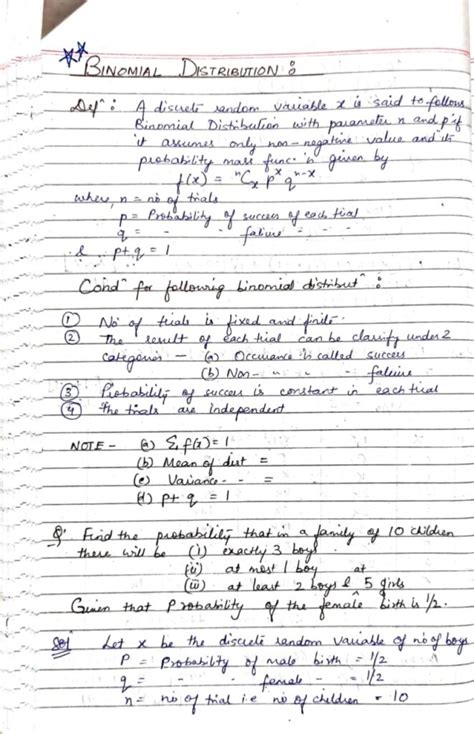 BINOMIAL DISTRIBUTION :
Defⁿ : A discrete random variable x is said to follows
Binomial Distribution with parameter n and p if
it assumes only non-negative value and its
probability mass funcⁿ is given by
f(x) = ⁿCₓ pˣ qⁿ⁻ˣ
where, n = no of trials
p = Probability of success of each trial
q = - - failure - - -
& p+q = 1
Condⁿ for following binomial distributⁿ :
① No of trials is fixed and finite.
② The result of each trial can be classify under 2
categories - (a) Occurance is called success
(b) Non- - " " - failure
③ Probability of success is constant in each trial
④ the trials are independent
NOTE - (a) Σ f(x) = 1
(b) Mean of dist =
(c) Variance - - =
(d) p+ q = 1
Q. Find the probability that in a family of 10 children
there will be (i) exactly 3 boys
(ii) at most 1 boy
(iii) at least 2 boys & at 5 girls
Given that Probability of the female birth is 1/2.
Sol Let x be the discrete random variable of no of boys
P = Probability of male birth = 1/2
q = - - female - = 1/2
n = no of trial i.e no of children = 10